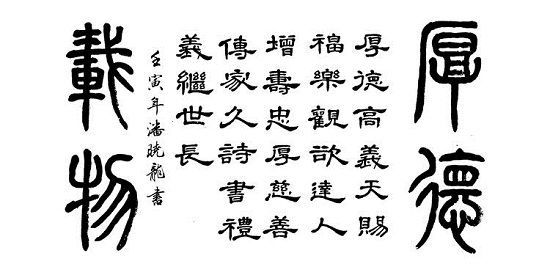 厚德
厚德高義天賜
福樂觀欲達人
增壽忠厚慈善
傳家久詩書禮
義繼世長
壬寅年潘晓龍書
載物